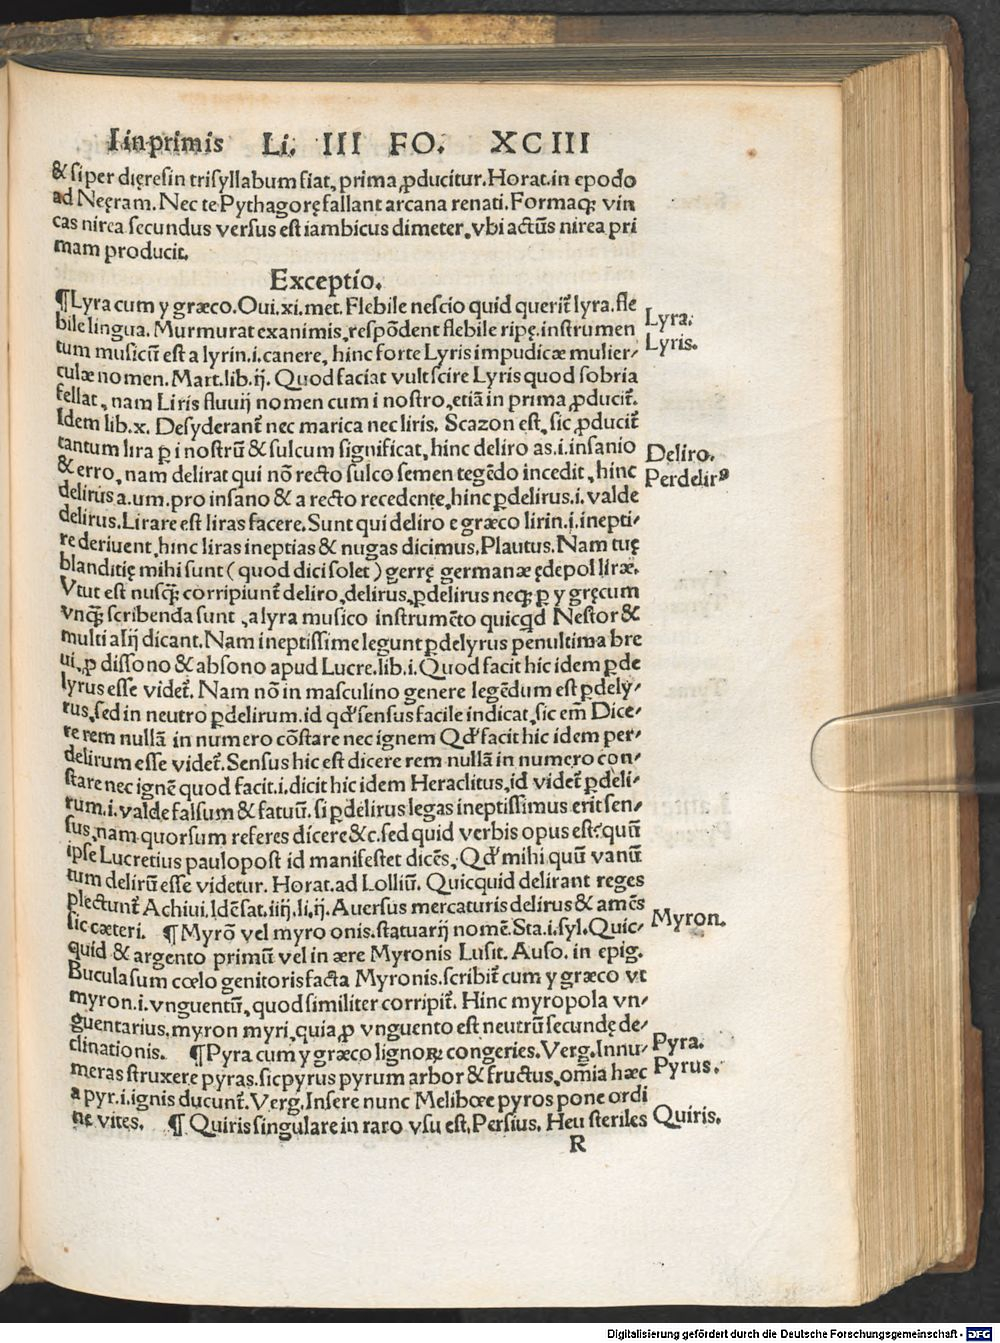 I in primis Li. III FO. XCIII
& si per dięresin trisyllabum fiat, prima ꝓducitur. Horat. in epodo
ad Neęram. Nec te Pythagorę fallant arcana renati. Formaqꝫ vin
cas nirea secundus versus est iambicus dimeter, vbi actūs nirea pri
mam producit.
Exceptio.
¶ Lyra cum y græco. Oui. xi. met. Flebile nescio quid querit̃ lyra, fle
bile lingua. Murmurat exanimis, respōdent flebile ripę. instrumen
tum musicū est a lyrin. i. canere, hinc forte Lyris impudicæ mulier/
culæ nomen. Mart. lib. ij. Quod faciat vult scire Lyris quod sobria
fellat, nam Liris fluuij nomen cum i nostro, etiā in prima ꝓducit̃.
Idem lib. x. Desyderant̃ nec marica nec liris. Scazon est, sic ꝓducit̃
tantum lira ꝑ i nostrū & sulcum significat, hinc deliro as. i. insanio
& erro, nam delirat qui nō recto sulco semen tegēdo incedit, hinc
delirus a. um. pro insano & a recto recedente, hinc ꝑdelirus. i. valde
delirus. Lirare est liras facere. Sunt qui deliro e græco lirin. i. inepti/
re deriuent, hinc liras ineptias & nugas dicimus. Plautus. Nam tuę
blanditię mihi sunt ( quod dici solet ) gerrę germanæ ędepol liræ.
Vtut est nusqꝫ corripiunt̃ deliro, delirus, ꝑdelirus neqꝫ ꝑ y gręcum
vnqꝫ scribenda sunt, a lyra musico instrumēto quicqd Nestor &
multi alij dicant. Nam ineptissime legunt ꝑdelyrus penultima bre
ui, ꝓ dissono & absono apud Lucre. lib. i. Quod facit hic idem ꝑde
lyrus esse videt̃. Nam nō in masculino genere legēdum est ꝑdely/
rus, sed in neutro ꝑdelirum. id qđ sensus facile indicat, sic em̄ Dice/
re rem nullā in numero cōstare nec ignem Qđ facit hic idem per/
delirum esse videt̃. Sensus hic est dicere rem nullā in numero con/
stare nec ignē quod facit. i. dicit hic idem Heraclitus, id videt̃ ꝑdeli/
rum. i. valde falsum & fatuū. si ꝑdelirus legas ineptissimus erit sen/
sus, nam quorsum referes dicere &c. sed quid verbis opus est? quū
ipse Lucretius paulopost id manifestet dicēs, Qđ mihi quū vanū
tum delirū esse videtur. Horat. ad Lolliū. Quicquid delirant reges
plectunt̃ Achiui. Idē sat. iiij. li. ij. Auersus mercaturis delirus & amēs
sic cæteri. ¶ Myrō vel myro onis. statuarij nomē. Sta. i. syl. Quic/
quid & argento primū vel in ære Myronis Lusit. Auso. in epig.
Bucula sum cœlo genitoris facta Myronis. scribit̃ cum y græco vt
myron. i. vnguentū, quod similiter corripit̃. Hinc myropola vn/
guentarius. myron myri, quia ꝓ vnguento est neutrū secundę de/
clinationis. ¶ Pyra cum y græco lignoꝝ congeries. Verg. Innu/
meras struxere pyras. sic pyrus pyrum arbor & fructus, om̄ia hæc
a pyr. i. ignis ducunt̃. Verg. Insere nunc Melibœe pyros pone ordi
ne vites. ¶ Quiris singulare in raro vsu est. Persius. Heu steriles
R
Lyra.
Lyris.
Deliro.
Perdelirꝰ
Myron.
Pyra.
Pyrus.
Quiris.
Digitalisierung gefördert durch die Deutsche Forschungsgemeinschaft - DFG